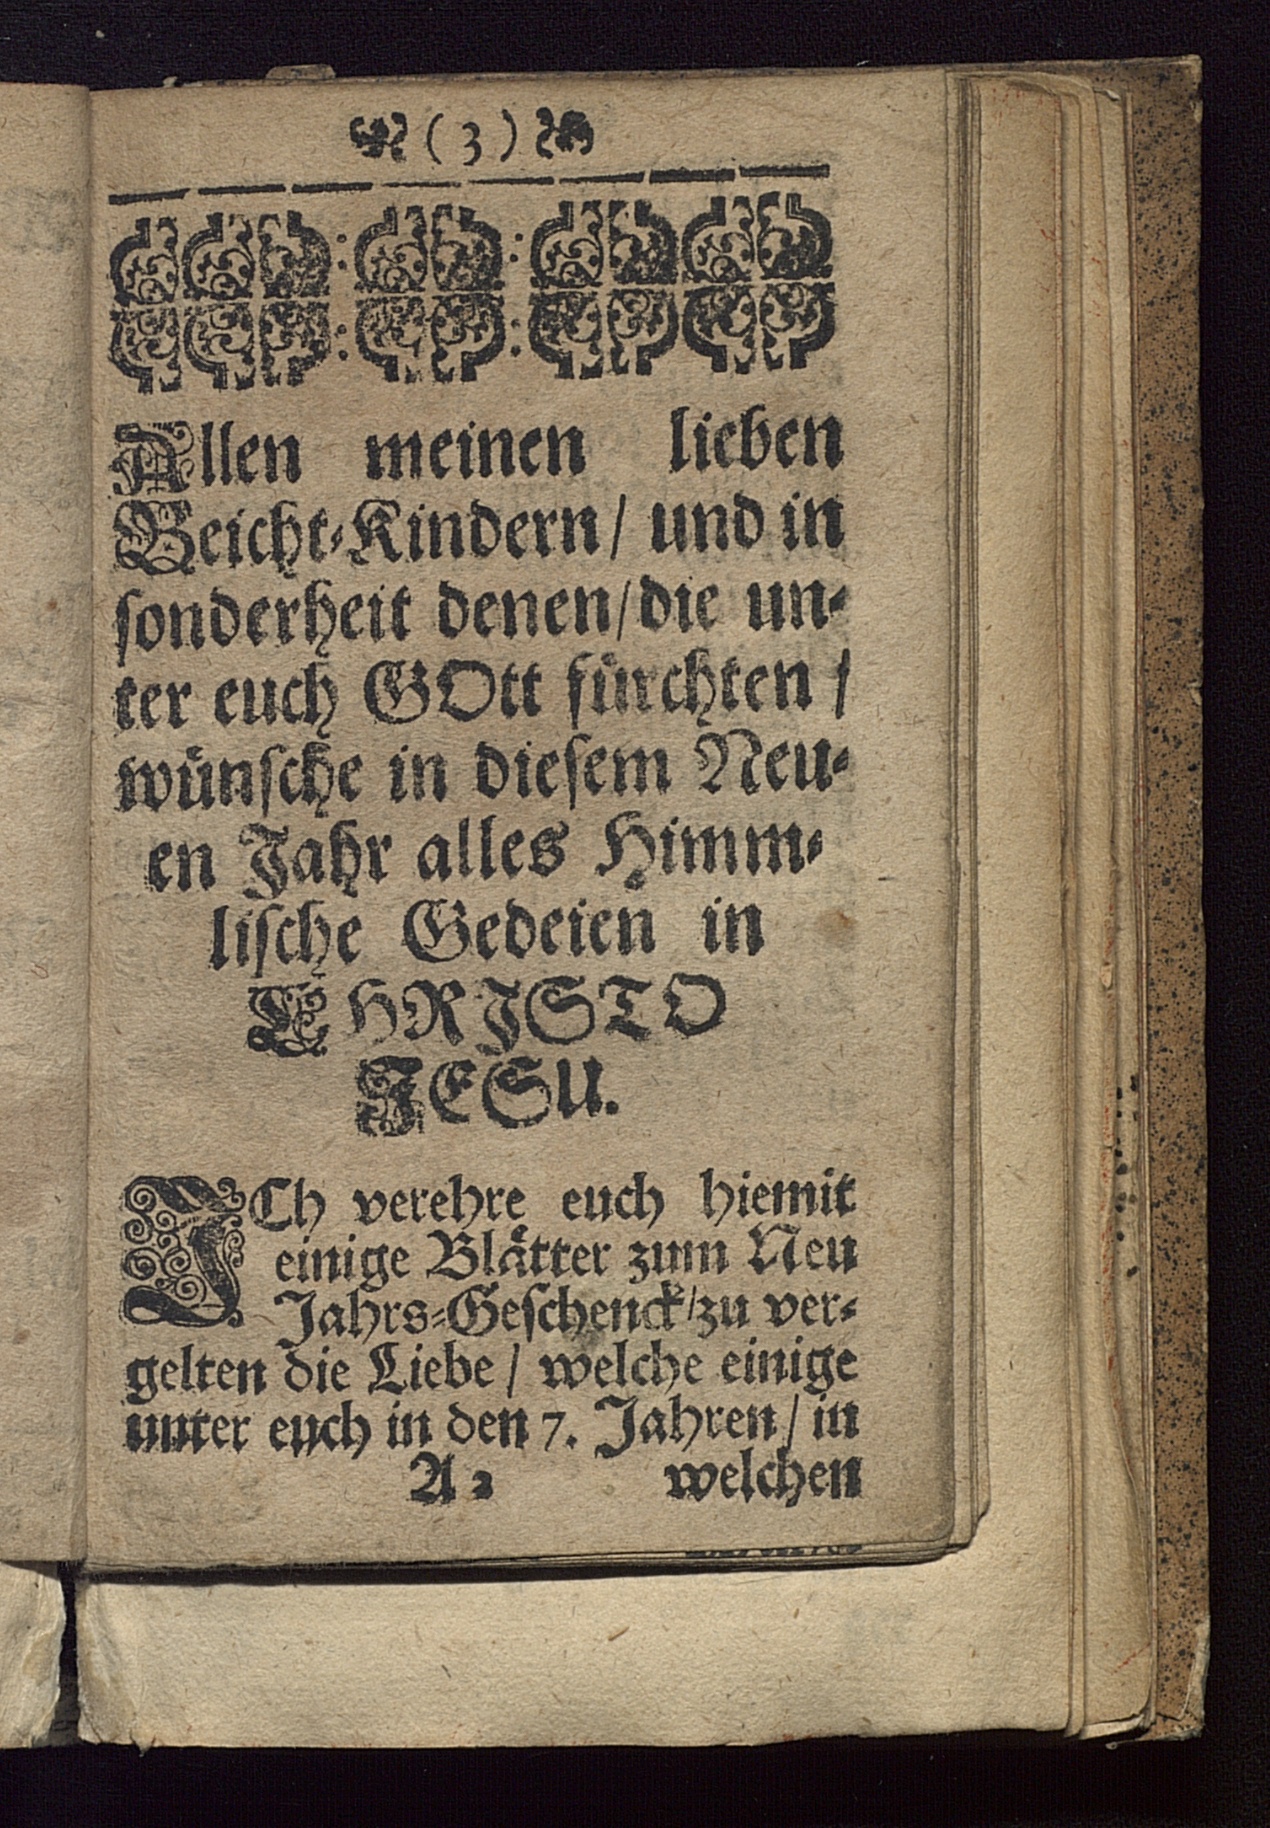 ( 3 )
Allen meinen lieben
Beicht-Kindern / und in
sonderheit denen / die un-
ter euch GOtt fürchten /
wünsche in diesem Neu-
en Jahr alles Himm-
lische Gedeien in
CHRISTO
JESU.
JCh verehre euch hiemit
einige Blätter zum Neu
Jahrs-Geschenck / zu ver-
gelten die Liebe / welche einige
unter euch in den 7. Jahren / in
A 2 welchen